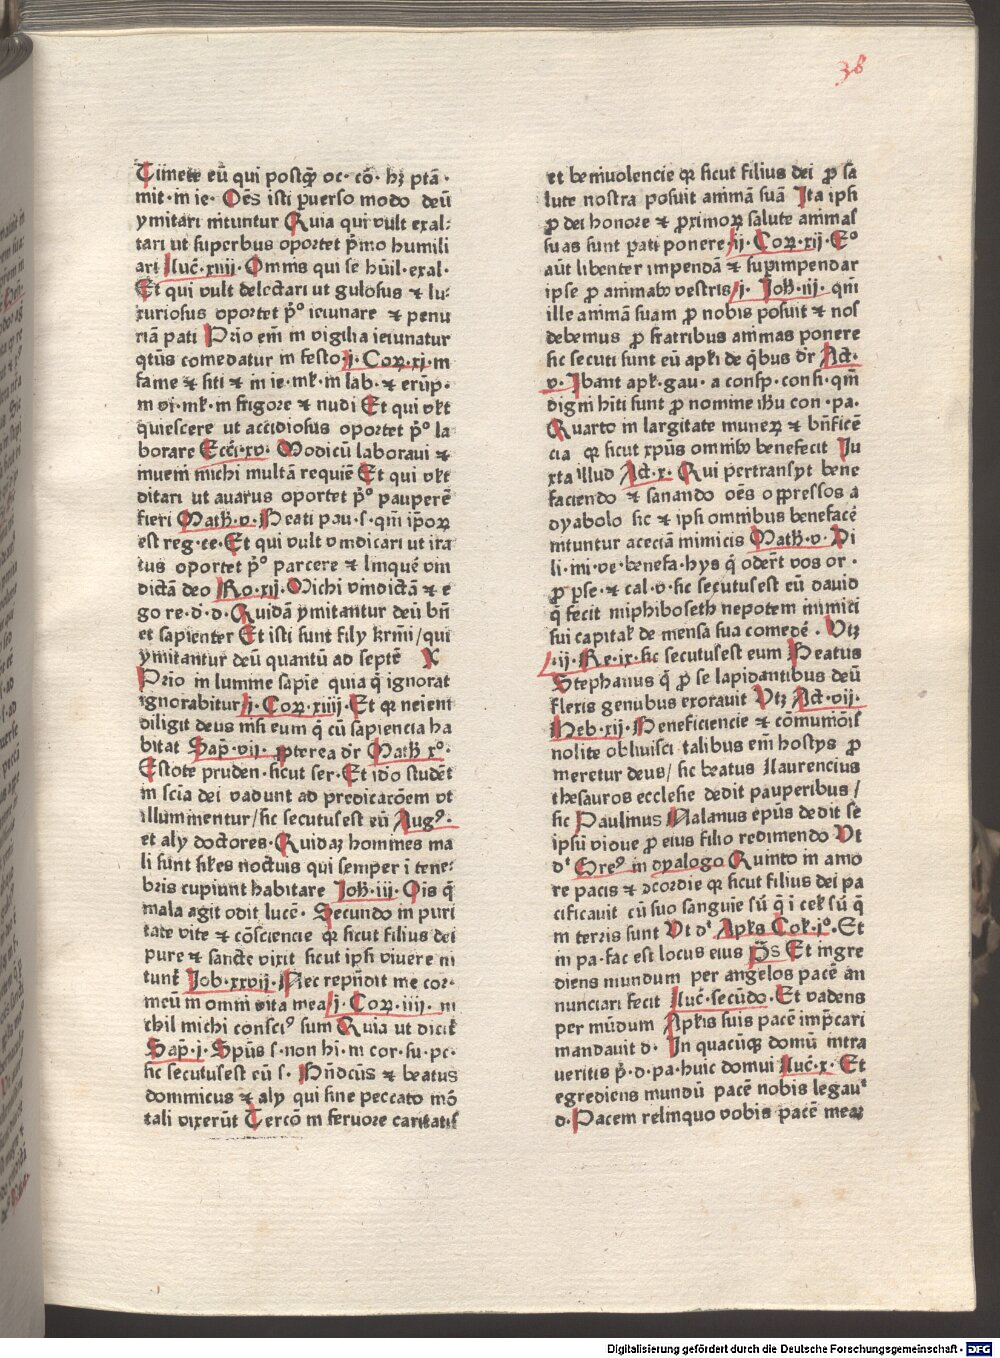 38
Timete eū qui postq̄ȝ oc· cō· hȝ ptā·
mit· in ie· Oēs isti puerso modo deū
ymitari nituntur Quia qui vult exal-
tari ut superbus oportet p̄mo humili
ari Luc̄·xiiij· Omnis qui se hūil·exal·
Et qui vult delectari ut gulosus ⁊ lu-
xuriosus oportet p̄º ieiunare ⁊ penu
riā pati Prio em̄ in vigilia ieiunatur
q̄tūs comedatur in festo·j·Coꝝ·xj·in
fame ⁊ siti ⁊ in ie·mł·in lab·⁊ erūp·
in vi·mł·in frigore ⁊ nudi Et qui vłt
quiescere ut accidiosus oportet p̄º la
borare Ecc̄i·xv· Modicū laboraui ⁊
inueni michi multā requiē Et qui vłt
ditari ut auarus oportet p̄º pauperē
fieri Math̄·v·Beati pau·s·qm̄ ip̄oꝝ
est reg·ce·Et qui vult vindicari ut ira
tus oportet p̄º parcere ⁊ linquē vin
dictā deo Ro·xij·Michi vindictā ⁊ e
go re·d·d·Quidā ymitantur deū bn̄
et sapienter Et isti sunt filij krm̄i/qui
ymitantur deū quantū ad septē X
Prio in lumine sapie quia q̄ ignorat
ignorabitur j·Coꝝ·xiiij·Et qꝛ neient
diligit deus nisi eum q̄ cū sapiencia ha
bitat Sap̄·vij·ꝓpterea dr̄ Math̄ xº·
Estote pruden·sicut ser·Et iđo studēt
in scīa dei vadunt ad predicacōem vt
illuminentur/sic secutusest eū Augꝰ·
et alij doctores·Quidaȝ homines ma
li sunt siłes noctuis qui semper ī tene-
bris cupiunt habitare Joh̄·iij·Ois q̄
mala agit odit lucē· Secundo in puri
tate vite ⁊ cōsciencie qꝛ sicut filius dei
pure ⁊ sancte vixit sicut ipsi viuere ni
tunt̄ Job·xxvij·Nec rep̄ndit me cor·
meū in omni vita mea/j·Coꝝ·iiij·ni
chil michi consciꝰ sum Quia ut dicit̄
Sap̄·j·Sp̄us s·non hi·in cor·su·pc·
sic secutusest eū s· Bn̄dcūs ⁊ beatus
dominicus ⁊ alij qui sine peccato mō
tali vixerūt Tercō in feruore caritatis
et beniuolencie qꝛ sicut filius dei ꝓ sa
lute nostra posuit animā suā Ita ipsi
ꝓ dei honore ⁊ ꝓximoꝝ salute animas
suas sunt pati ponere/ij·Coꝝ·xij·Eº
aūt libenter impendā ⁊ supimpendar
ipse ꝓ animabꝰ vestris/j·Joh̄·iij·qm̄
ille animā suam ꝓ nobis posuit ⁊ nos
debemus ꝓ fratribus animas ponere
sic secuti sunt eū apłi de q̄bus dr̄ Act·
v·Ibant apł·gau·a consp·consi·qm̄
digni hīti sunt ꝓ nomine ih̄u con·pa·
Quarto in largitate muneꝝ ⁊ bn̄ficē
cia qꝛ sicut xp̄us omnibꝰ benefecit Ju
xta illud Act·x·Qui pertransijt bene
faciendo ⁊ sanando oēs oppressos a
dyabolo sic ⁊ ipsi omnibus benefacē
nituntur aceciā inimicis Math̄·v·Di
li·ini·ve·benefa·hijs q̄ oderīt vos or·
ꝓ pse·⁊ cal·v·sic secutusest eū dauid
q̄ fecit miphiboseth nepotem inimici
sui capitał de mensa sua comedē·Vtȝ
·ij·Re·ix·sic secutusest eum Beatus
Stephanus q̄ ꝓ se lapidantibus deū
flexis genubus exorauit Vtȝ Act·vij·
Heb·xij·Beneficiencie ⁊ cōmuniōis
nolite obliuisci talibus em̄ hostijs ꝓ
meretur deus/sic beatus Laurencius
thesauros ecclesie dedit pauperibus/
sic Paulinus Nalanus ep̄us dedit se
ipsū vidue ꝓ eius filio redimendo Vt
dʳ Greꝰ in dyalogo Quinto in amo
re pacis ⁊ ↄcordie qꝛ sicut filius dei pa
cificauit cū suo sanguie sū q̄ ī cełł sū q̄
in terris sunt Vt dʳ Apłs Coł·jº·Et
in pa·fac est locus eius p̄s Et ingre
diens mundum per angelos pacē an
nunciari fecit Luc̄·secūdo·Et vadens
per mūdum Apłis suis pacē imp̄cari
mandauit d· In quacūqꝫ domū intra
ueritis p̄·d·pa·huic domui Luc̄·x·Et
egrediens mundū pacē nobis legauᵗ
d·Pacem relinquo vobis pacē meaȝ
Digitalisierung gefördert durch die Deutsche Forschungsgemeinschaft - DFG